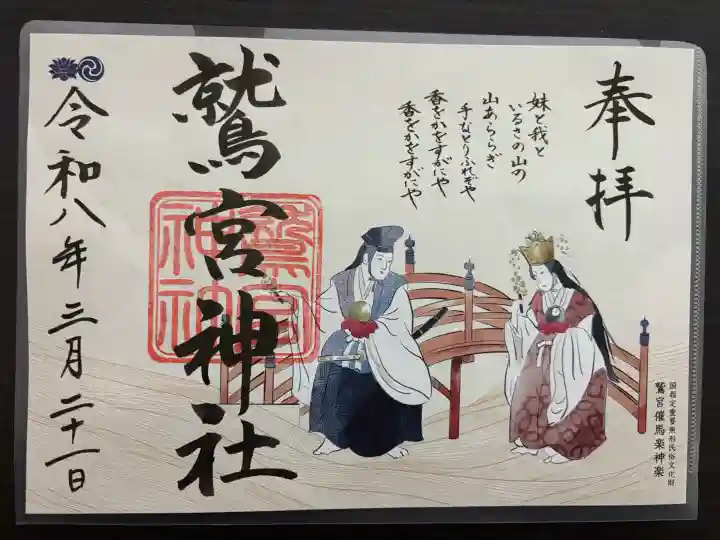 奉拝
妹と我と
いるさの山の
山あららぎ
手なとりふれそや
香をかをすがにや
香をかをすがにや
国指定重要無形民俗文化財
鷲宮催馬楽神楽
鷲宮神社
鷲宮
神社
令和八年三月二十一日